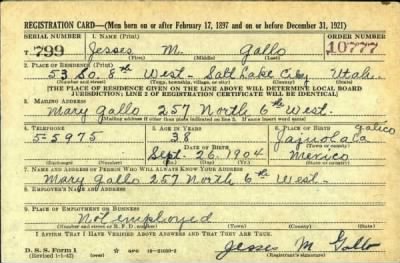 REGISTRATION CARD—(Men born on or after February 17, 1897 and on or before December 31, 1921)
SERIAL NUMBER 1. NAME (Print) ORDER NUMBER
T 799 Jesses M. Gallo 10777
(First) (Middle) (Last)
2. PLACE OF RESIDENCE (Print)
53 So. 8th West - Salt Lake City Utah.
(Number and street) (Town, township, village, or city) (County) (State)
[THE PLACE OF RESIDENCE GIVEN ON THE LINE ABOVE WILL DETERMINE LOCAL BOARD
JURISDICTION; LINE 2 OF REGISTRATION CERTIFICATE WILL BE IDENTICAL]
3. MAILING ADDRESS
Mary Gallo 257 North 6th West.
[Mailing address if other than place indicated on line 2. If same insert word same]
4. TELEPHONE 5. AGE IN YEARS 6. PLACE OF BIRTH
5-5975 38
DATE OF BIRTH (Town or county)
Sept. 26. 1904 Mexico
(Exchange) (Number) (Mo.) (Day) (Yr.) (State or country)
7. NAME AND ADDRESS OF PERSON WHO WILL ALWAYS KNOW YOUR ADDRESS
Mary Gallo 257 North 6th West.
8. EMPLOYER'S NAME AND ADDRESS
9. PLACE OF EMPLOYMENT OR BUSINESS
Not employed
(Number and street or R. F. D. number) (Town) (County) (State)
I AFFIRM THAT I HAVE VERIFIED ABOVE ANSWERS AND THAT THEY ARE TRUE.
D. S. S. Form 1
(Revised 1-1-42) (over) Jesses M Gallo
(Registrant's signature)